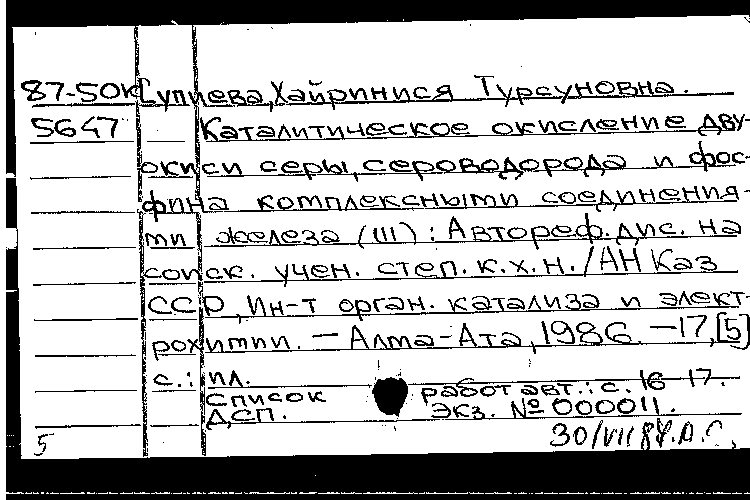 87-50к Супиева, Хайринися Турсуновна.
5647 Каталитическое окисление дву-
окиси серы, сероводорода и фос-
фина комплексными соединения-
ми железа (III) : Автореф. дис. на
соиск. учен. степ. к.х.н. / АН Каз
ССР, Ин-т орган. катализа и элект-
рохимии. — Алма-Ата, 1986. — 17, [5]
с. : ил.
Список работ авт.: с. 16-17.
ДСП. Экз. № 000011.
5 30/VII 87. А.С.